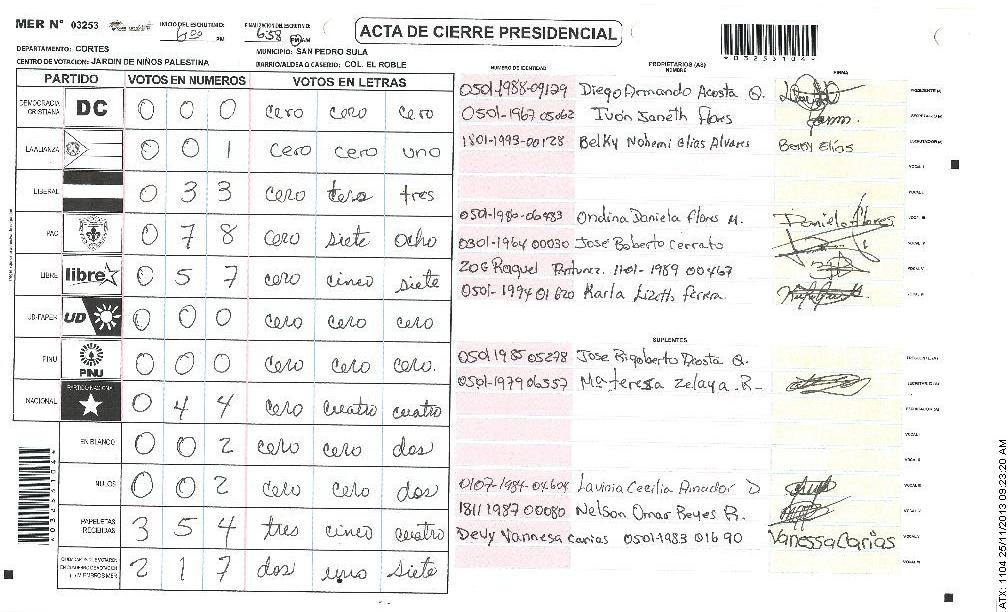 MER N° 03253
INICIO DEL ESCRUTINIO: 6:00 PM
FINALIZACION DEL ESCRUTINIO: 6:58
ACTA DE CIERRE PRESIDENCIAL
*03253104*
DEPARTAMENTO: CORTES
MUNICIPIO: SAN PEDRO SULA
CENTRO DE VOTACION: JARDIN DE NIÑOS PALESTINA
BARRIO/ALDEA O CASERIO: COL. EL ROBLE
PARTIDO VOTOS EN NUMEROS VOTOS EN LETRAS
DEMOCRACIA CRISTIANA DC 0 0 0 cero cero cero
LA ALIANZA 0 0 1 cero cero uno
LIBERAL 0 3 3 cero tres tres
PAC 0 7 8 cero siete ocho
LIBRE libre 0 5 7 cero cinco siete
UD-FAPER UD 0 0 0 cero cero cero
PINU PINU 0 0 0 cero cero cero.
NACIONAL PARTIDO NACIONAL 0 4 4 cero cuatro cuatro
EN BLANCO 0 0 2 cero cero dos
NULOS 0 0 2 cero cero dos
PAPELETAS RECIBIDAS 3 5 4 tres cinco cuatro
2 1 7 dos uno siete
*03253104*
NUMERO DE IDENTIDAD PROPIETARIOS (AS) NOMBRE FIRMA
0501-1988-09129 Diego Armando Acosta Q. PRESIDENTE (A)
0501-1967 05062 Ivón Janeth Flores SECRETARIO (A)
1801-1993-00128 Belky Nohemi Elias Alvares Belky Elías ESCRUTADOR (A)
VOCAL I
VOCAL II
0501-1986-06483 Ondina Daniela Flores M. Daniela Flores VOCAL III
0301-1964 00030 Jose Roberto Cerrato VOCAL IV
Raquel 1101-1989 00467 VOCAL V
0501-1994 01620 Karla Lizeth
SUPLENTES
0501 1985 05278 Jose Rigoberto Acosta Q. PRESIDENTE (A)
0501-1979 06357 Ma teresa Zelaya. R- SECRETARIO (A)
ESCRUTADOR (A)
VOCAL I
VOCAL II
0107-1984-04604 Lavinia Cecilia Amador D VOCAL III
1811 1987 00080 Nelson Omar Reyes R. VOCAL IV
Devy Vannesa Carias 0501-1983 01690 Vanessa Carias VOCAL V
VOCAL VI
ATX: 1104 25/11/2013 09:23:20 AM